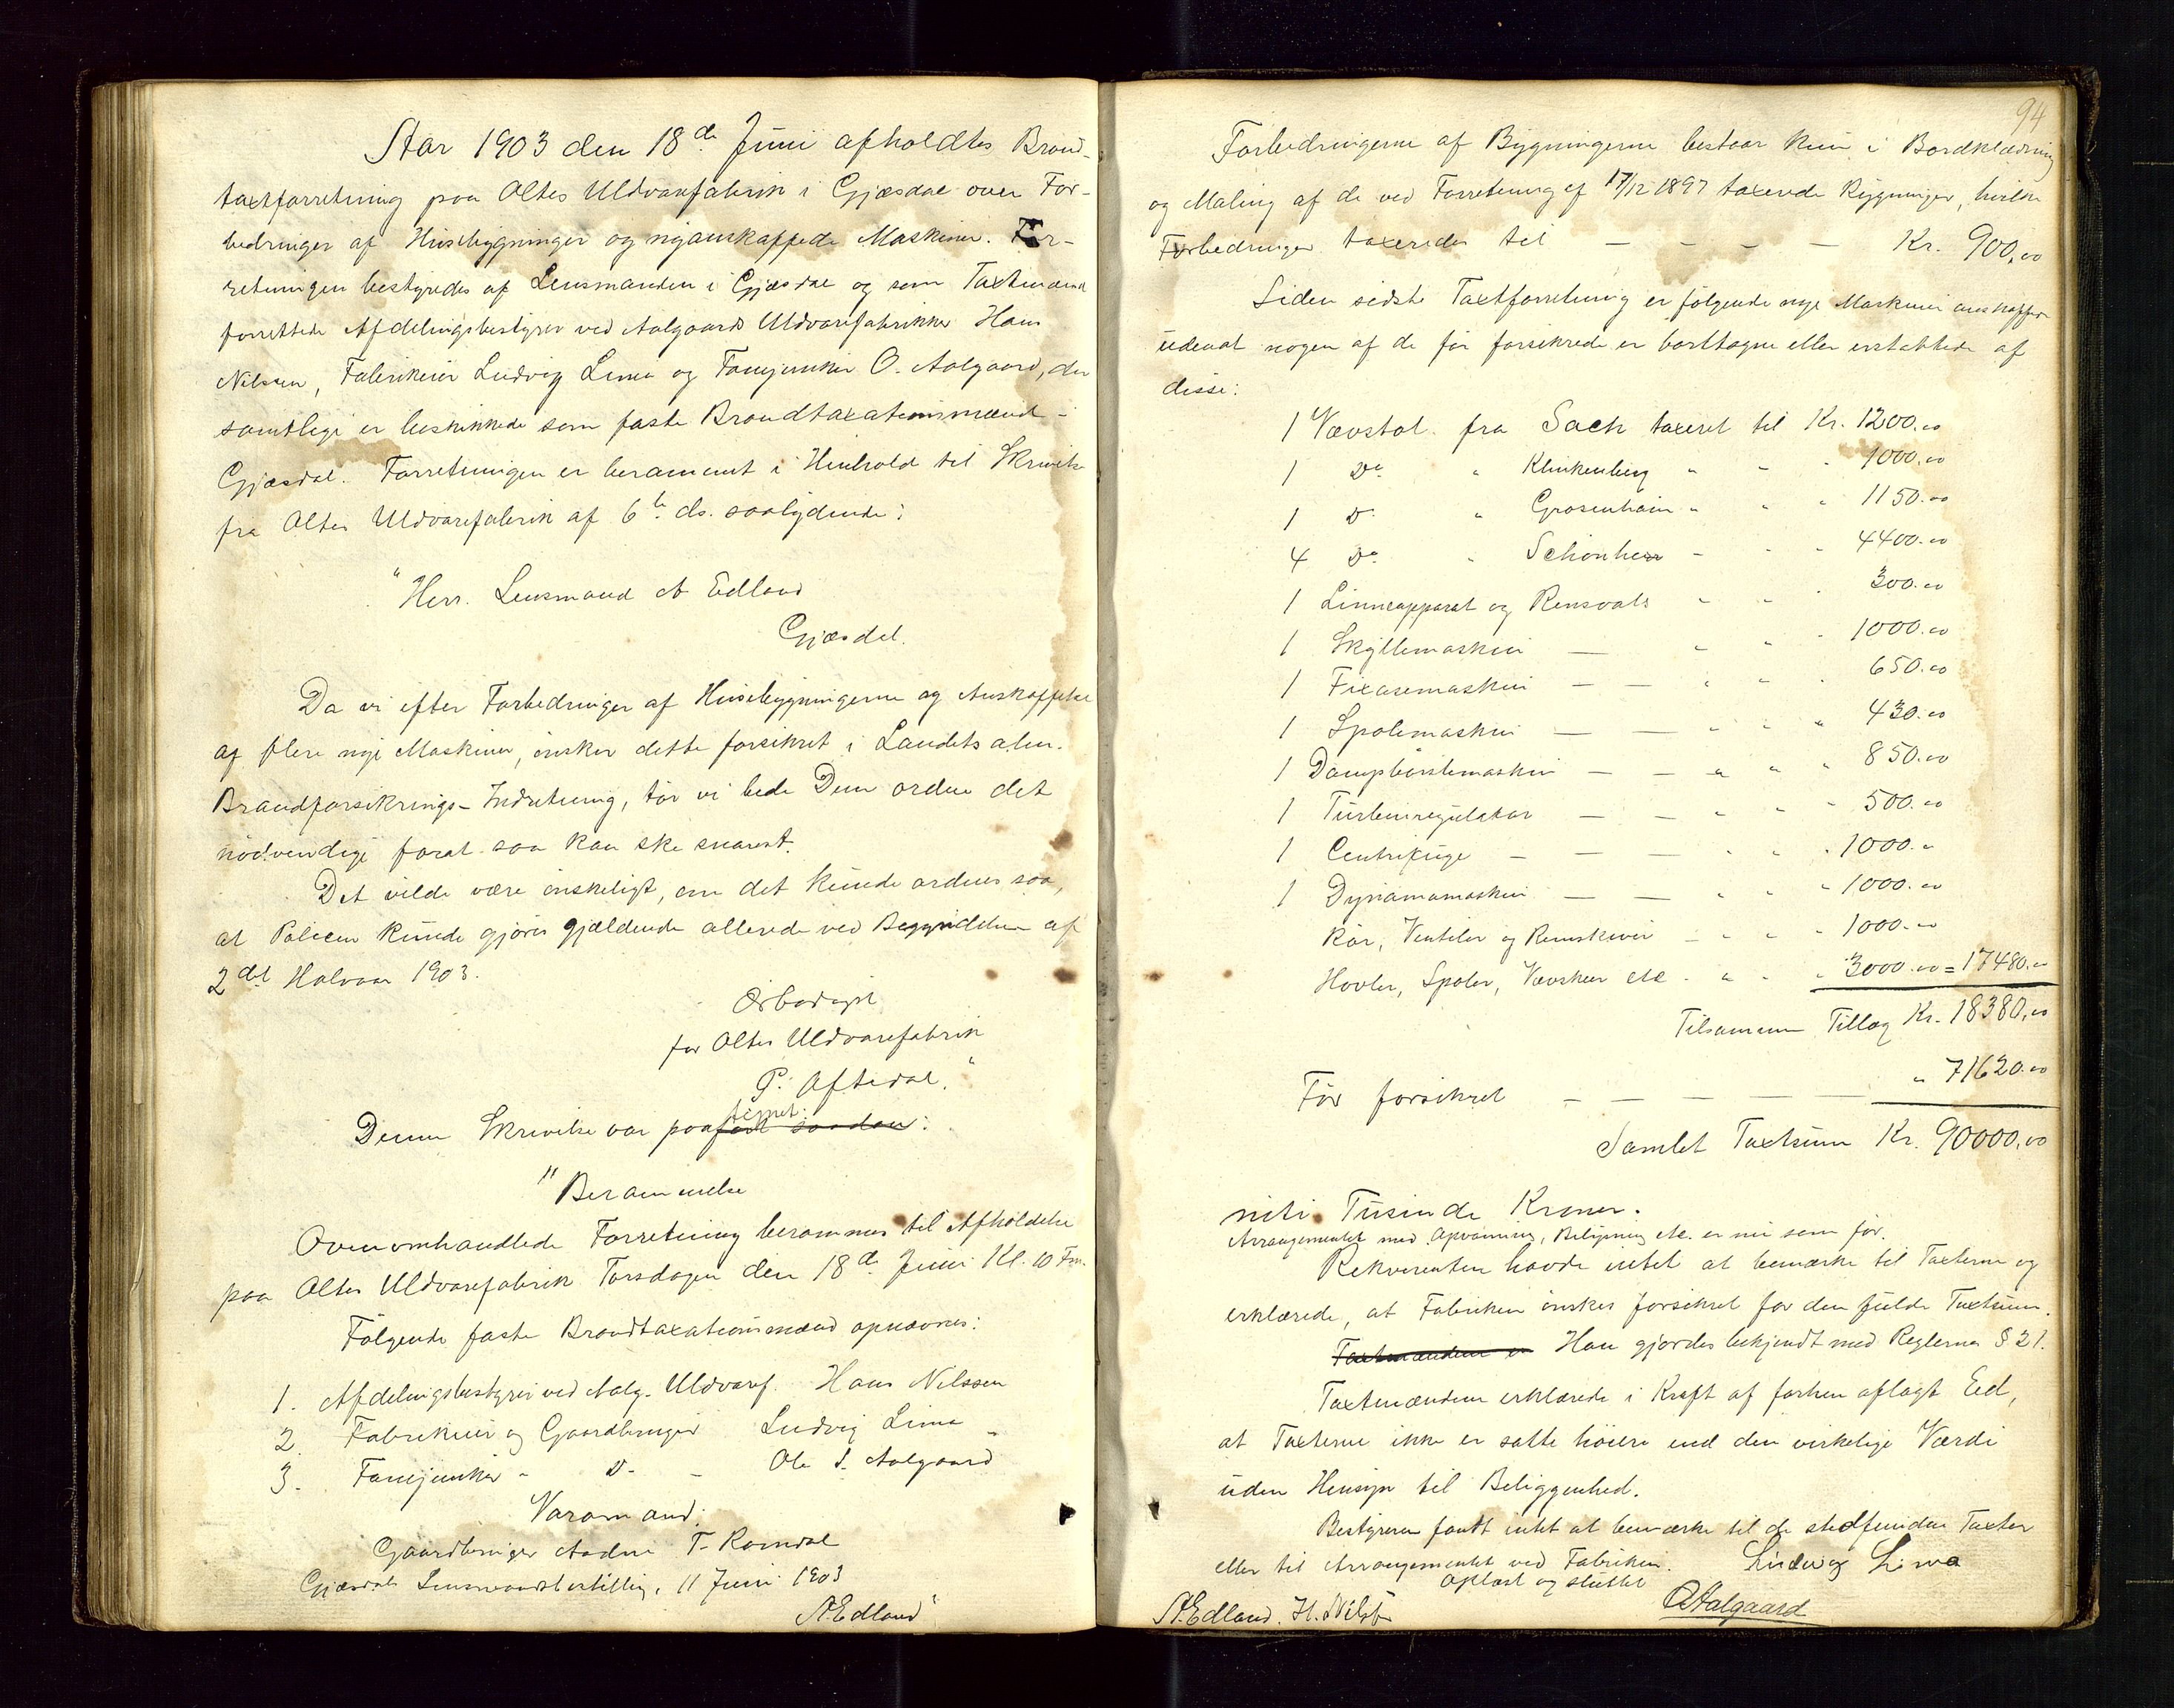 Aar 1903 den 18de Juni afholdtes Brand-
taxtforretning paa Oltes Uldvarefabrik i Gjæsdal over For-
bedringer af Husebygninger og nyanskaffede Maskiner. For-
retningen bestyredes af Lensmanden i Gjæsdal og som Taxtmænd
forrettede Afdelingsbestyrer ved Aalgaards Uldvarefabrikker Hans
Nilssen, Fabrikeier Ludvig Lima og Fanejunker O. Aalgaard, der
samtlige er beskikkede som faste Brandtaxationsmænd i
Gjæsdal. Forretningen er berammet i Henhold til Skrivelse
fra Oltes Uldvarefabrik af 6te ds. saalydende:
"Herr. Lensmand A Edland
Gjæsdal.
Da vi efter Forbedringer af Husebygningerne og Anskaffelse
af flere nye Maskiner, ønsker dette forsikret i Landets alm.
Brandforsikrings-Indretning, tør vi bede Dem ordne det
nødvendige forat saa kan ske snarest.
Det vilde være ønskeligt, om det kunde ordnes saa,
at Policen kunde gjøres gjældende allerede ved Begyndelsen af
2det Halvaar 1903.
Ærbødigst
for Oltes Uldvarefabrik
P. Aftedal."
Denne Skrivelse var paategnet:
"Berammelse
Ovenomhandlede Forretning berammes til Afholdelse
paa Oltes Uldvarefabrik Torsdagen den 18de Juni Kl. 10 Fm.
Følgende faste Brandtaxationsmænd opnævnes:
1. Afdelingsbestyrer ved Aalg. Uldvaref. Hans Nilssen
2. Fabrikeier og Gaardbruger Ludvig Lima
3. Fanejunker " Do - Ole S. Aalgaard
Varamand:
Gaardbruger Aadne T. Ramdal
Gjæsdals Lensmandsbestilling, 11 Juni 1903
A. Edland"
94
Forbedringerne af Bygningerne bestaar kun i Bordklædning
og Maling af de ved Forretning af 17/12 1897 taxerede Bygninger, hvilke
Forbedringer taxeredes til — — — — Kr. 900,00
Siden sidste Taxtforretning er følgende nye Maskiner anskaffede
udenat nogen af de før forsikrede er borttagne eller erstattede af
disse:
1 Vævstol fra Sack taxeret til Kr. 1200.00
1 Do " Klinkenberg " - " 1000.00
1 Do " Grosenhain " " " 1150.00
4 Do " Schönherr - - " 4400.00
1 Limeapparat og Rensvals - - " 300.00
1 Skyllemaskin — " " " 1000.00
1 Fixasemaskin — — " " " 650.00
1 Spolemaskin — — " " " 430.00
1 Dampbørstemaskin — — " " " 850.00
1 Turbinregulator — — " " " 500.00
1 Centrifuge — — — " " " 1000.00
1 Dynamomaskin — — " " " 1000.00
Rør, Ventiler og Remskiver — " " " 1000.00
Hovler, Spoler, Vævskeer etc. - " " " 3000.00 = 17480.00
Tilsammen Tillæg Kr. 18380,00
Før forsikret — — — — — " 71620.00
Samlet Taxtsum Kr. 90000,00
niti Tusinde Kroner.
Arrangementet med Opvarming, Belysning etc. er nu som før.
Rekvirenten havde intet at bemærke til Taxterne og
erklærede, at Fabriken ønskes forsikret for den fulde Taxtsum.
Taxtmændene er Han gjordes bekjendt med Reglerne § 21.
Taxtmændene erklærede i Kraft af forhen aflagt Eed,
at Taxterne ikke er satte høiere end den virkelige Værdi
uden Hensyn til Beliggenhed.
Bestyreren fandt intet at bemærke til de stedfundne Taxter
eller til Arrangementet ved Fabriken. Ludvig Lima
Oplæst og sluttet
A. Edland. H. Nilssen O Aalgaard